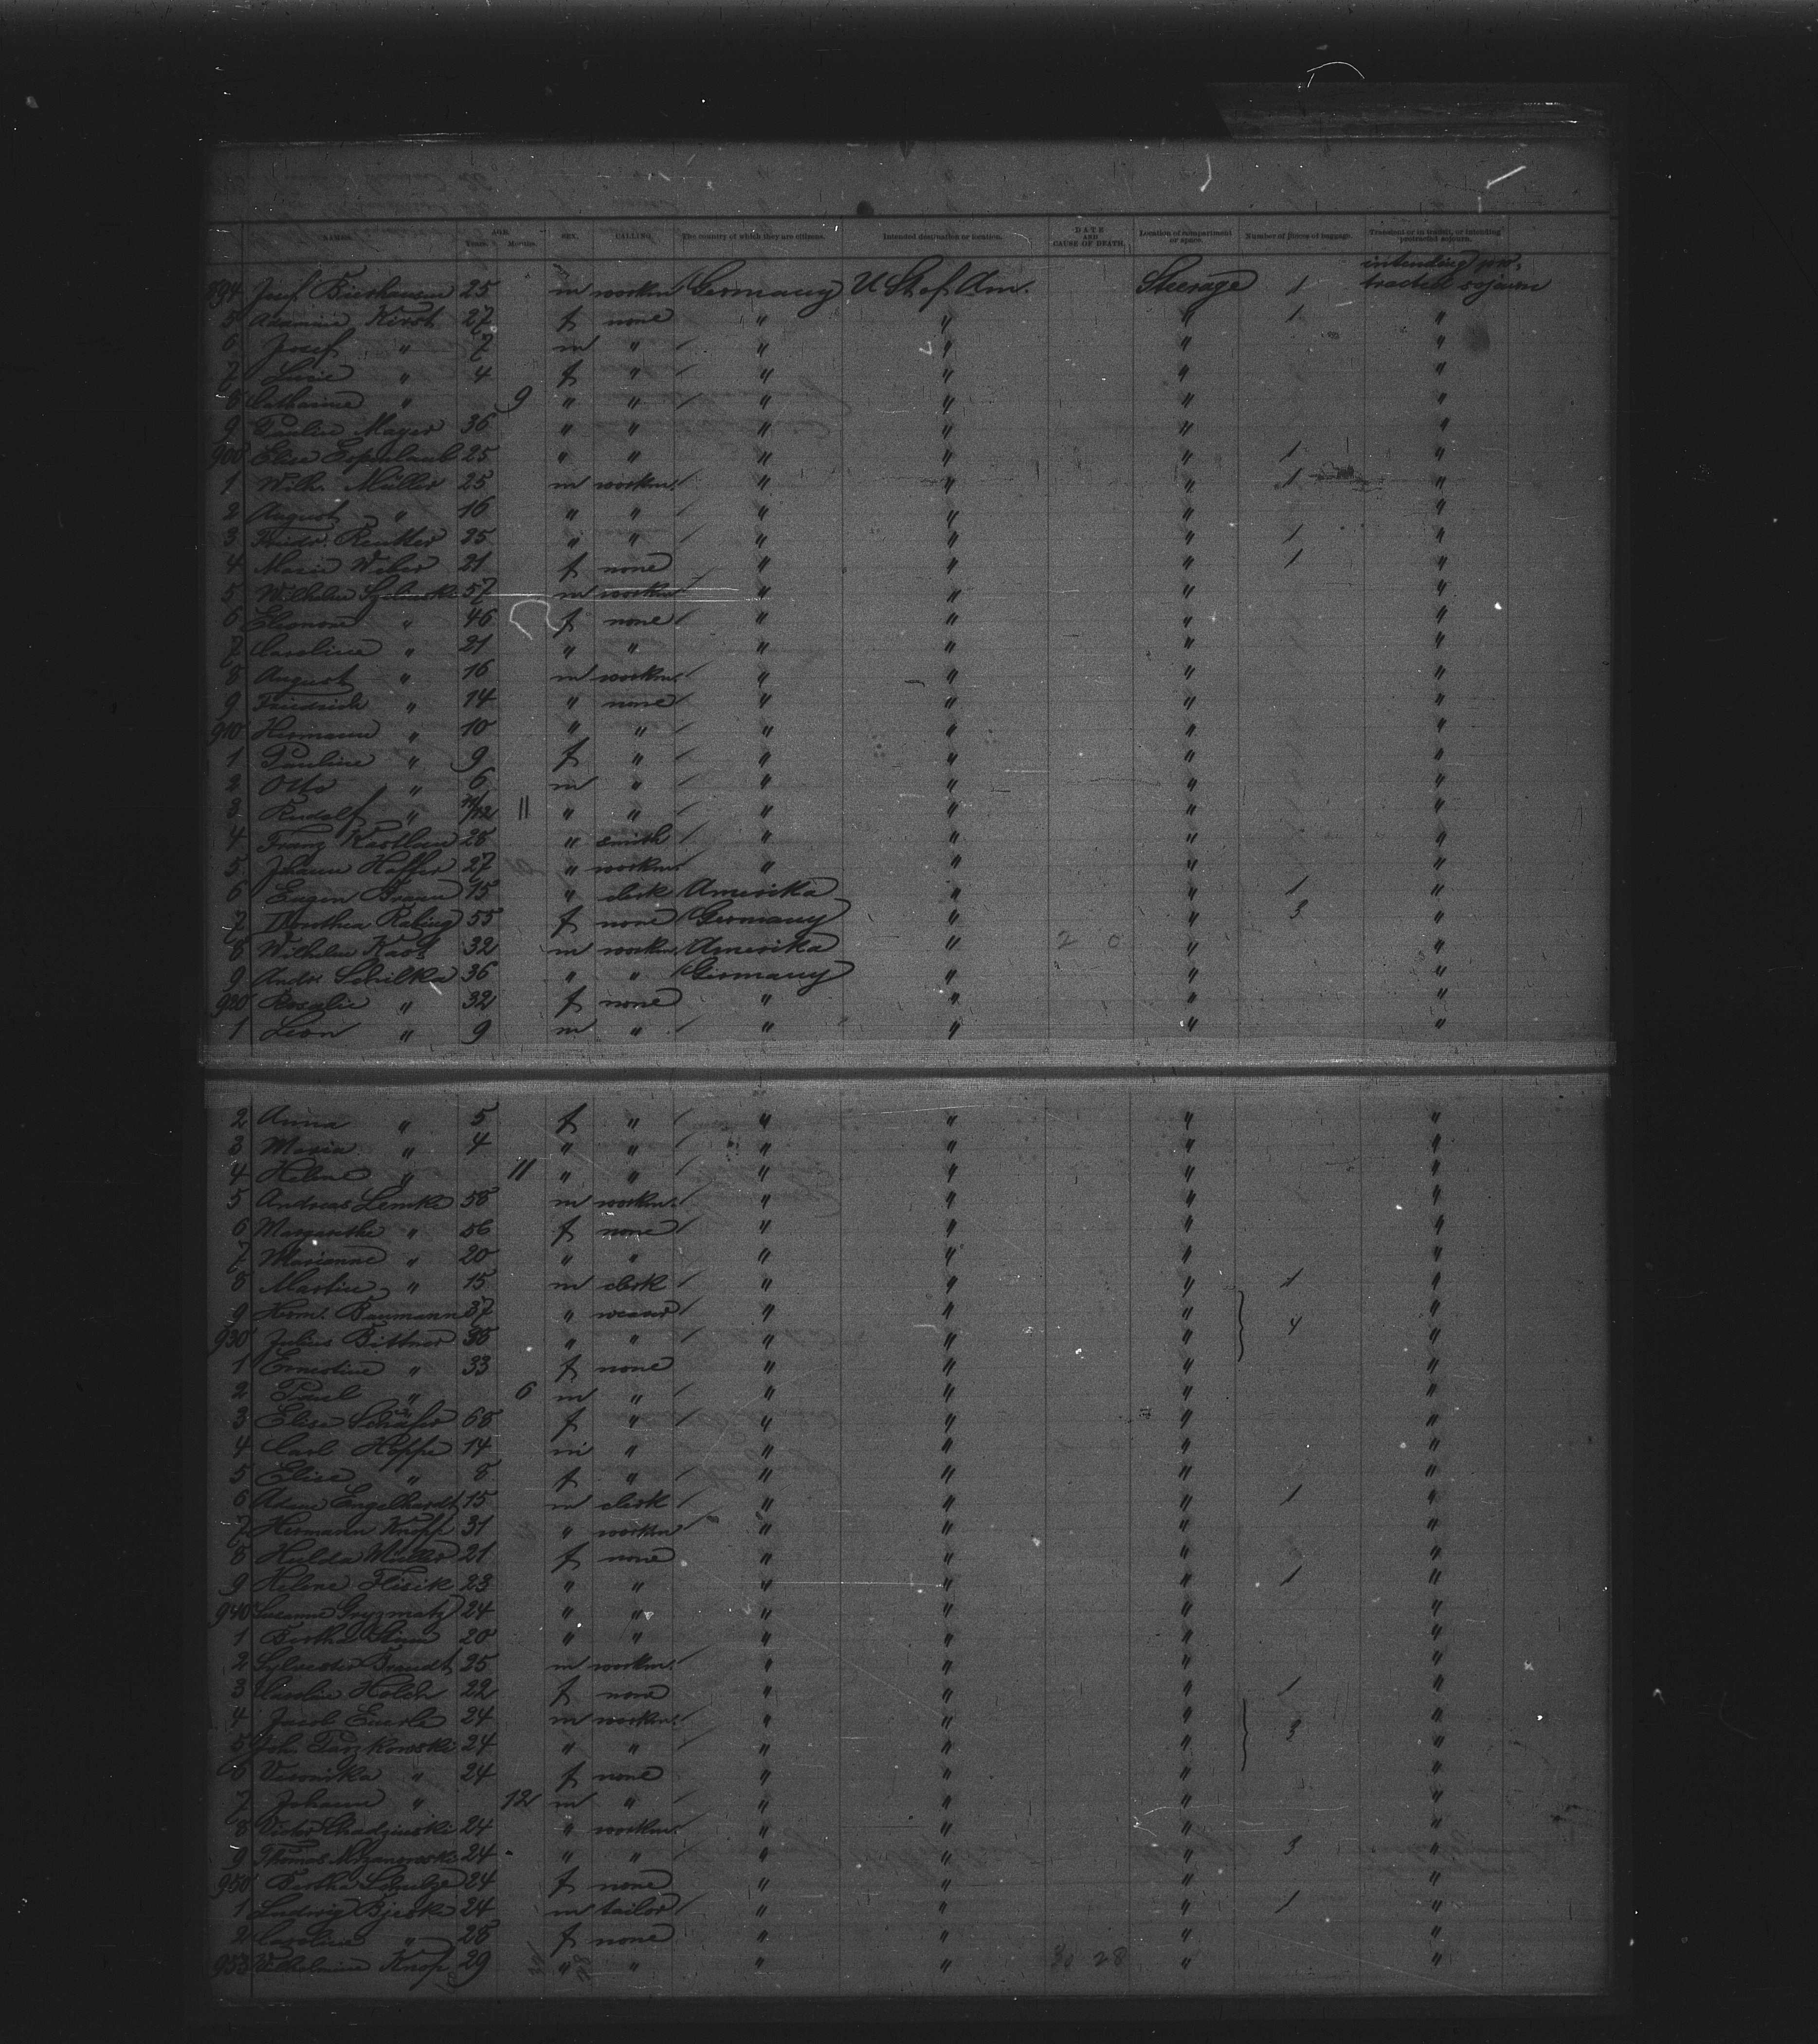 NAMES. AGE. Years. Months. SEX. CALLING. The country of which they are citizens. Intended destination or location. DATE AND CAUSE OF DEATH. Location of compartment or space. Number of pieces of baggage. Transient or in transit, or intending protracted sojourn.
894 Josef 25 m workm Germany U St of Am. Steerage 1 intending pro- tracted sojourn
5 Kirst 27 f none " " " 1 "
6 Josef " 7 m " " " " "
7 " 4 f " " " " "
8 Catharine " 9 " " " " " "
9 Pauline Mayer 36 " " " " " "
900 Elise 25 " " " " " 1 "
1 Wilh. Müller 25 m workm. " " " 1 "
2 August " 16 " " " " " "
3 Friedr. Reutter 25 " " " " " 1 "
4 Marie Weber 21 f none " " " 1 "
5 Wilhelm 57 m workm " " " "
6 Eleonore " 46 f none " " " "
7 Caroline " 21 " " " " " "
8 August " 16 m workm. " " " "
9 Friedrich " 14 " none " " " "
910 Hermann " 10 " " " " " "
1 Pauline " 9 f " " " " "
2 Otto " 6 m " " " " "
3 Rudolf " 11/12 11 " " " " " "
4 Franz 25 " smith " " " "
5 Johann Haffer 27 " workm. " " " "
6 Eugen Braun 15 " clerk Amerika " " 1 "
7 Dorothea Rabing 55 f none Germany " " 3 "
8 Wilhelm Kast 32 m workm. Amerika " 2 0 " "
9 Andr. Schilka 36 " " Germany " " "
920 Rosalie " 32 f none " " " "
1 Leon " 9 m " " " " "
2 Anna " 5 f " " " " "
3 Maria " 4 " " " " " "
4 Helene " 11 " " " " " "
5 Andreas Lemke 58 m workm. " " " "
6 Margarethe " 56 f none " " " "
7 Marianne " 20 " " " " " "
8 Martin " 15 m clerk " " " 1 "
9 Herm. Baumann 37 " weaver " " " "
930 Julius Bittner 35 " " " " " 4 "
1 Ernestine " 33 f none " " " "
2 Paul " 6 m " " " " "
3 Elise Schäfer 68 f " " " " "
4 Carl Hoppe 14 m " " " " "
5 Elise " 8 f " " " " "
6 Adam Engelhardt 15 m clerk " " " 1 "
7 Hermann Knopp 31 " workm " " " "
8 Hulda Müller 21 f none " " " "
9 Helene Flisik 23 " " " " " 1 "
940 Susanne Gryzmatz 24 " " " " " "
1 Bertha 20 " " " " " "
2 Sylvester Brandt 25 m workm. " " " "
3 Caroline Holch 22 f none " " " 1 "
4 Jacob 24 m workm. " " " "
5 Joh. 24 " " " " " 3 "
6 Veronika " 24 f none " " " "
7 Johann " 12 m " " " " "
8 24 " workm. " " " "
9 Thomas 24 " " " " " 3 "
950 Bertha Schulze 24 f none " " " "
1 Ludwig Bjeske 24 m tailor " " " 1 "
2 Caroline " 28 f none " " " "
953 Wilhelmine Knop 29 " " " " 30 28 " "